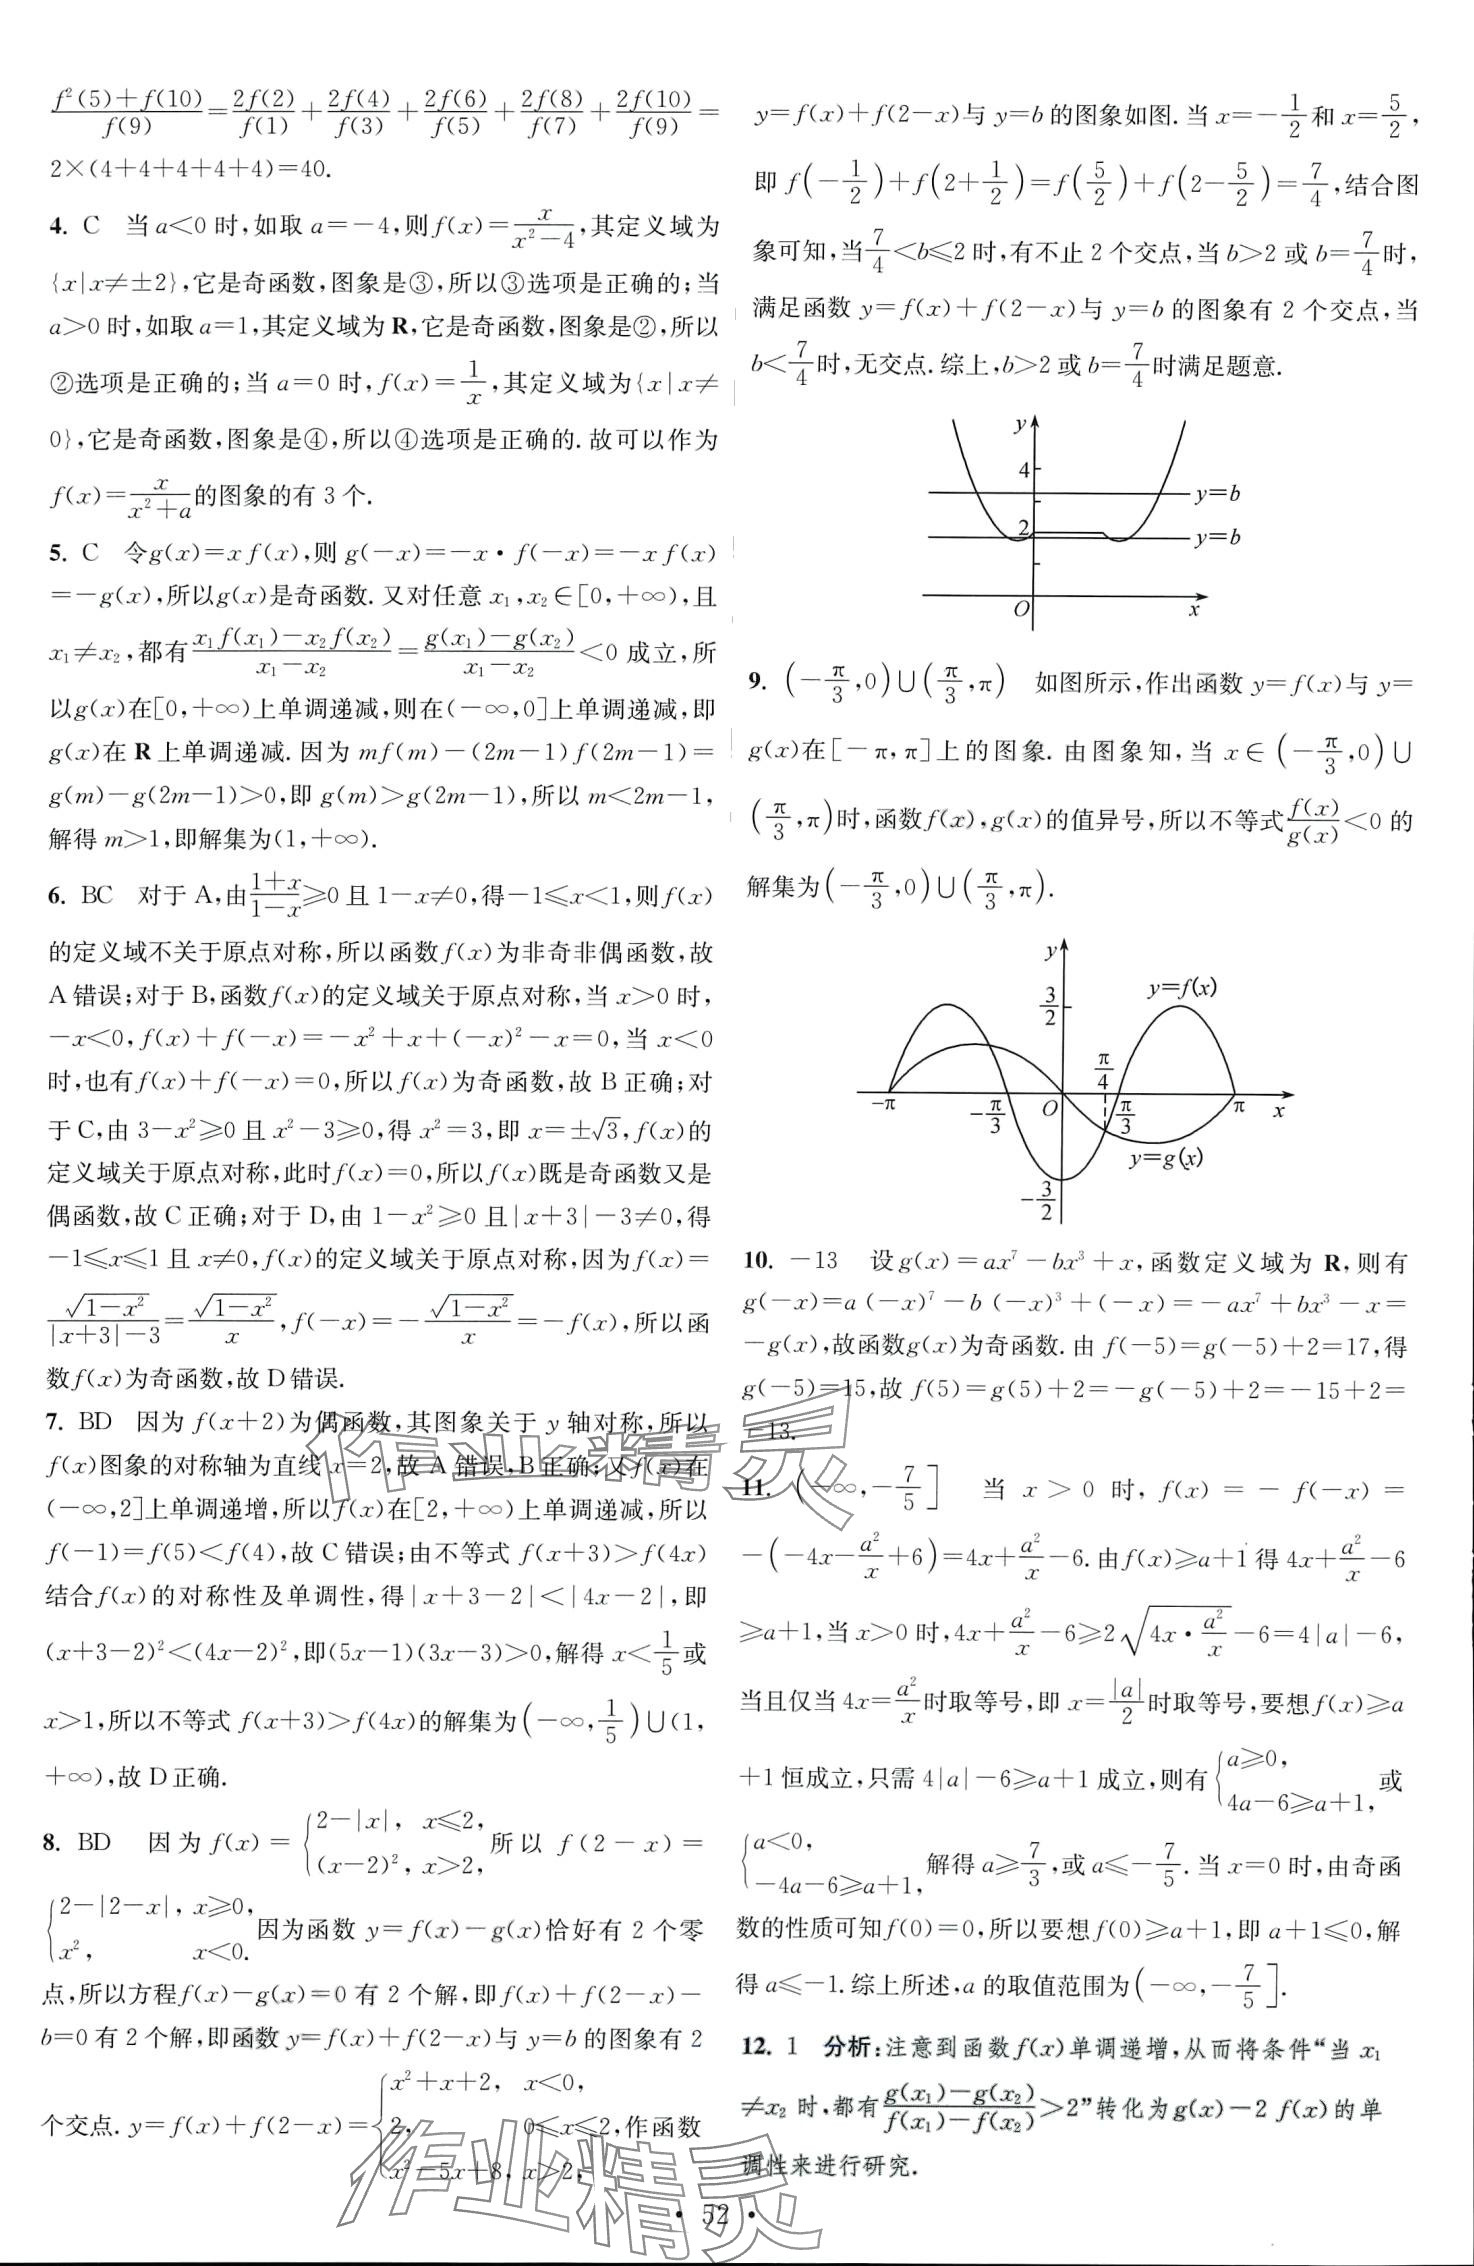 $\frac{f^2(5)+f(10)}{f(9)}=\frac{2f(2)}{f(1)}+\frac{2f(4)}{f(3)}+\frac{2f(6)}{f(5)}+\frac{2f(8)}{f(7)}+\frac{2f(10)}{f(9)}=$
2×(4+4+4+4+4)=40.
4. C 当a<0时,如取a=-4,则f(x)=$\frac{x}{x^2-4}$,其定义域为
{x|x≠±2},它是奇函数,图象是③,所以③选项是正确的;当
a>0时,如取a=1,其定义域为R,它是奇函数,图象是②,所以
②选项是正确的;当a=0时,f(x)=$\frac{1}{x}$,其定义域为{x|x≠
0},它是奇函数,图象是④,所以④选项是正确的.故可以作为
f(x)=$\frac{x}{x^2+a}$的图象的有3个.
5. C 令g(x)=xf(x),则g(-x)=-x·f(-x)=-xf(x)
=-g(x),所以g(x)是奇函数.又对任意x₁,x₂∈[0,+∞),且
x₁≠x₂,都有$\frac{x_1f(x_1)-x_2f(x_2)}{x_1-x_2}=\frac{g(x_1)-g(x_2)}{x_1-x_2}$<0成立,所
以g(x)在[0,+∞)上单调递减,则在(-∞,0]上单调递减,即
g(x)在R上单调递减.因为mf(m)-(2m-1)f(2m-1)=
g(m)-g(2m-1)>0,即g(m)>g(2m-1),所以m<2m-1,
解得m>1,即解集为(1,+∞).
6. BC 对于A,由$\frac{1+x}{1-x}$≥0且1-x≠0,得-1≤x<1,则f(x)
的定义域不关于原点对称,所以函数f(x)为非奇非偶函数,故
A错误;对于B,函数f(x)的定义域关于原点对称,当x>0时,
-x<0,f(x)+f(-x)=-x²+x+(-x)²-x=0,当x<0
时,也有f(x)+f(-x)=0,所以f(x)为奇函数,故B正确;对
于C,由3-x²≥0且x²-3≥0,得x²=3,即x=±√3,f(x)的
定义域关于原点对称,此时f(x)=0,所以f(x)既是奇函数又是
偶函数,故C正确;对于D,由1-x²≥0且|x+3|-3≠0,得
-1≤x≤1且x≠0,f(x)的定义域关于原点对称,因为f(x)=
$\frac{\sqrt{1-x^2}}{|x+3|-3}=\frac{\sqrt{1-x^2}}{x}$,f(-x)=$-\frac{\sqrt{1-x^2}}{x}$=-f(x),所以函
数f(x)为奇函数,故D错误.
7. BD 因为f(x+2)为偶函数,其图象关于y轴对称,所以
f(x)图象的对称轴为直线x=2,故A错误,B正确;又f(x)在
(-∞,2]上单调递增,所以f(x)在[2,+∞)上单调递减,所以
f(-1)=f(5)<f(4),故C错误;由不等式f(x+3)>f(4x)
结合f(x)的对称性及单调性,得|x+3-2|<|4x-2|,即
(x+3-2)²<(4x-2)²,即(5x-1)(3x-3)>0,解得x<$\frac{1}{5}$或
x>1,所以不等式f(x+3)>f(4x)的解集为$\left(-∞,\frac{1}{5}\right)$∪(1,
+∞),故D正确.
8. BD 因为f(x)=$\begin{cases}2-|x|, & x≤2,\\(x-2)^2, & x>2,\end{cases}$所以f(2-x)=
$\begin{cases}2-|2-x|, & x≥0,\\x^2, & x<0.\end{cases}$因为函数y=f(x)-g(x)恰好有2个零
点,所以方程f(x)-g(x)=0有2个解,即f(x)+f(2-x)-
b=0有2个解,即函数y=f(x)+f(2-x)与y=b的图象有2
个交点.y=f(x)+f(2-x)=$\begin{cases}x^2+x+2, & x<0,\\2, & 0≤x≤2,\\x^2-5x+8, & x>2,\end{cases}$作函数
y=f(x)+f(2-x)与y=b的图象如图.当x=$-\frac{1}{2}$和x=$\frac{5}{2}$,
即$f\left(-\frac{1}{2}\right)+f\left(2+\frac{1}{2}\right)=f\left(\frac{5}{2}\right)+f\left(2-\frac{5}{2}\right)=\frac{7}{4}$,结合图
象可知,当$\frac{7}{4}$<b≤2时,有不止2个交点,当b>2或b=$\frac{7}{4}$时,
满足函数y=f(x)+f(2-x)与y=b的图象有2个交点,当
b<$\frac{7}{4}$时,无交点.综上,b>2或b=$\frac{7}{4}$时满足题意.
y
4
y=b
2
y=b
O
x
9. $\left(-\frac{π}{3},0\right)∪\left(\frac{π}{3},π\right)$ 如图所示,作出函数y=f(x)与y=
g(x)在[-π,π]上的图象.由图象知,当x∈$\left(-\frac{π}{3},0\right)$∪
$\left(\frac{π}{3},π\right)$时,函数f(x),g(x)的值异号,所以不等式$\frac{f(x)}{g(x)}$<0的
解集为$\left(-\frac{π}{3},0\right)∪\left(\frac{π}{3},π\right)$.
y
$\frac{3}{2}$
y=f(x)
$\frac{π}{4}$
-π
$-\frac{π}{3}$
O
$\frac{π}{3}$
π
x
y=g(x)
$-\frac{3}{2}$
10. -13 设g(x)=ax⁷-bx³+x,函数定义域为R,则有
g(-x)=a(-x)⁷-b(-x)³+(-x)=-ax⁷+bx³-x=
-g(x),故函数g(x)为奇函数.由f(-5)=g(-5)+2=17,得
g(-5)=15,故f(5)=g(5)+2=-g(-5)+2=-15+2=
-13.
11. $\left(-∞,-\frac{7}{5}\right]$ 当x>0时,f(x)=-f(-x)=
$-\left(-4x-\frac{a^2}{x}+6\right)=4x+\frac{a^2}{x}-6$.由f(x)≥a+1得$4x+\frac{a^2}{x}-6$
≥a+1,当x>0时,$4x+\frac{a^2}{x}-6≥2\sqrt{4x·\frac{a^2}{x}}-6=4|a|-6$,
当且仅当4x=$\frac{a^2}{x}$时取等号,即x=$\frac{|a|}{2}$时取等号,要想f(x)≥a
+1恒成立,只需4|a|-6≥a+1成立,则有$\begin{cases}a≥0,\\4a-6≥a+1,\end{cases}$或
$\begin{cases}a<0,\\-4a-6≥a+1,\end{cases}$解得a≥$\frac{7}{3}$,或a≤$-\frac{7}{5}$.当x=0时,由奇函
数的性质可知f(0)=0,所以要想f(0)≥a+1,即a+1≤0,解
得a≤-1.综上所述,a的取值范围为$\left(-∞,-\frac{7}{5}\right]$.
12. 1 分析:注意到函数f(x)单调递增,从而将条件“当x₁
≠x₂时,都有$\frac{g(x_1)-g(x_2)}{f(x_1)-f(x_2)}$>2”转化为g(x)-2f(x)的单
调性来进行研究.
·52·
作业精灵
作业精灵